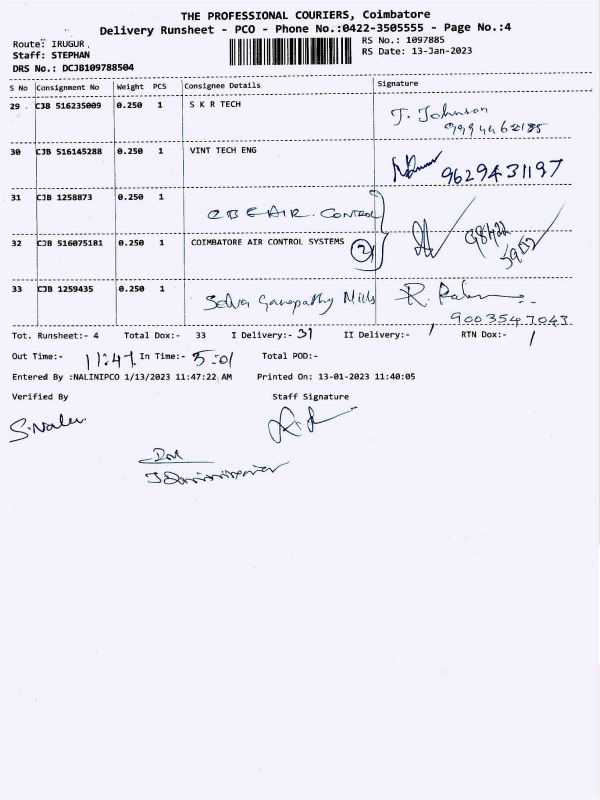 THE PROFESSIONAL COURIERS, Coimbatore
Delivery Runsheet - PCO - Phone No.:0422-3505555 - Page No.:4
Route: IRUGUR
Staff: STEPHAN
DRS No.: DCJB109788504
RS No.: 1097885
RS Date: 13-Jan-2023
S No Consignment No Weight PCS Consignee Details Signature
29 CJB 516235009 0.250 1 S K R TECH J. Johnson
30 CJB 516145288 0.250 1 VINT TECH ENG 9629431197
31 CJB 1258873 0.250 1 CBE AIR. CONTROL
32 CJB 516075181 0.250 1 COIMBATORE AIR CONTROL SYSTEMS 2
33 CJB 1259435 0.250 1 Selva Ganapathy Mills R.
9003547043
Tot. Runsheet:- 4 Total Dox:- 33 I Delivery:- 31 II Delivery:- / RTN Dox:- /
Out Time:- 11:47 In Time:- 5:01 Total POD:-
Entered By :NALINIPCO 1/13/2023 11:47:22 AM Printed On: 13-01-2023 11:40:05
Verified By Staff Signature